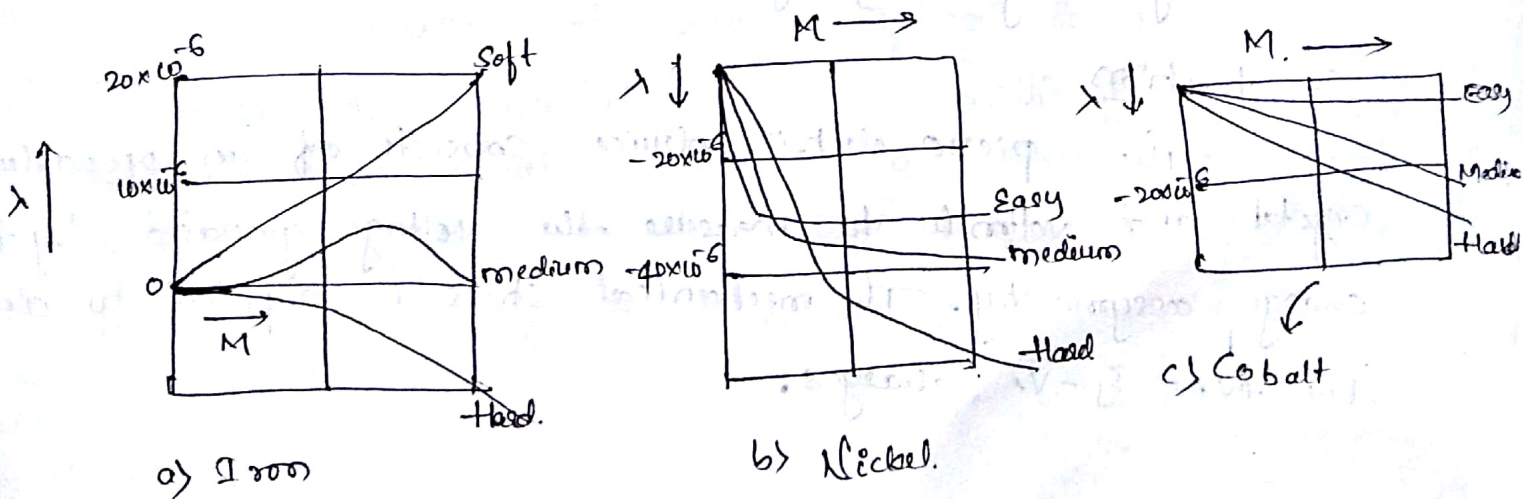 20×10⁻⁶
Soft
10×10⁻⁶
λ
0
medium
M
Hard.
a) Iron
M
λ
-20×10⁻⁶
Easy
medium
-40×10⁻⁶
Hard
b) Nickel.
M.
λ
Easy
-20×10⁻⁶
Hard
c) Cobalt